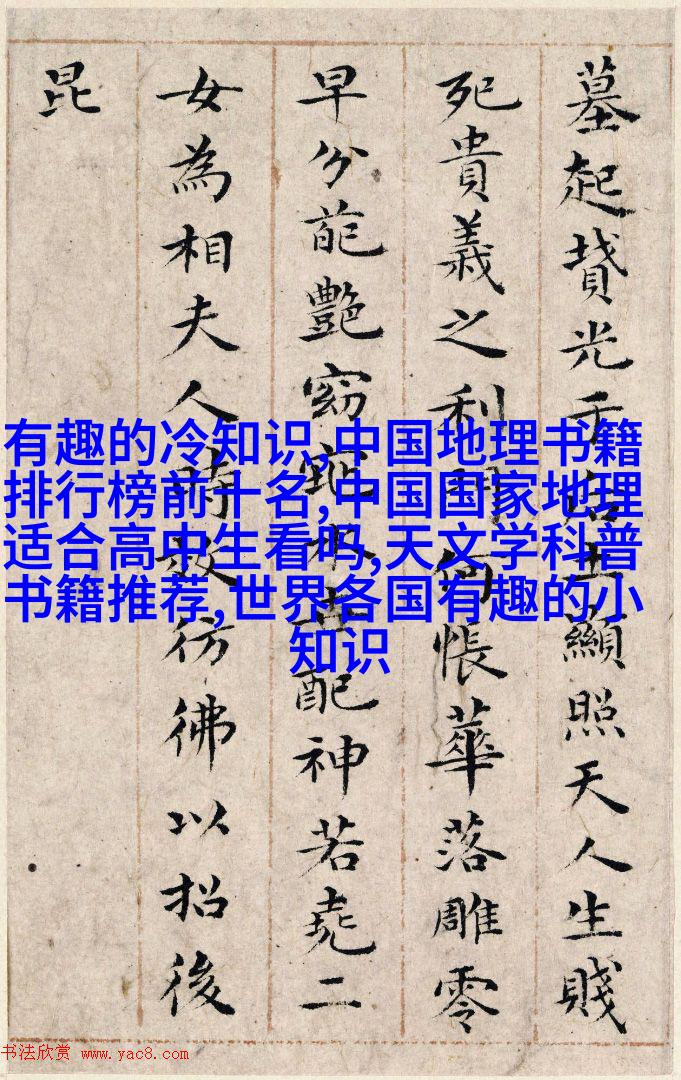 墓起墳光于后土顯照天人生賤
死貴義之利門何悵華落雕零
早分葩艷窈窕永世配神若堯二
女為相夫人時效彷彿以招後
昆
有趣的冷知识,中国地理书籍
排行榜前十名,中国国家地理
适合高中生看吗,天文学科普
书籍推荐,世界各国有趣的小
知识
书法欣赏 www.yac8.com